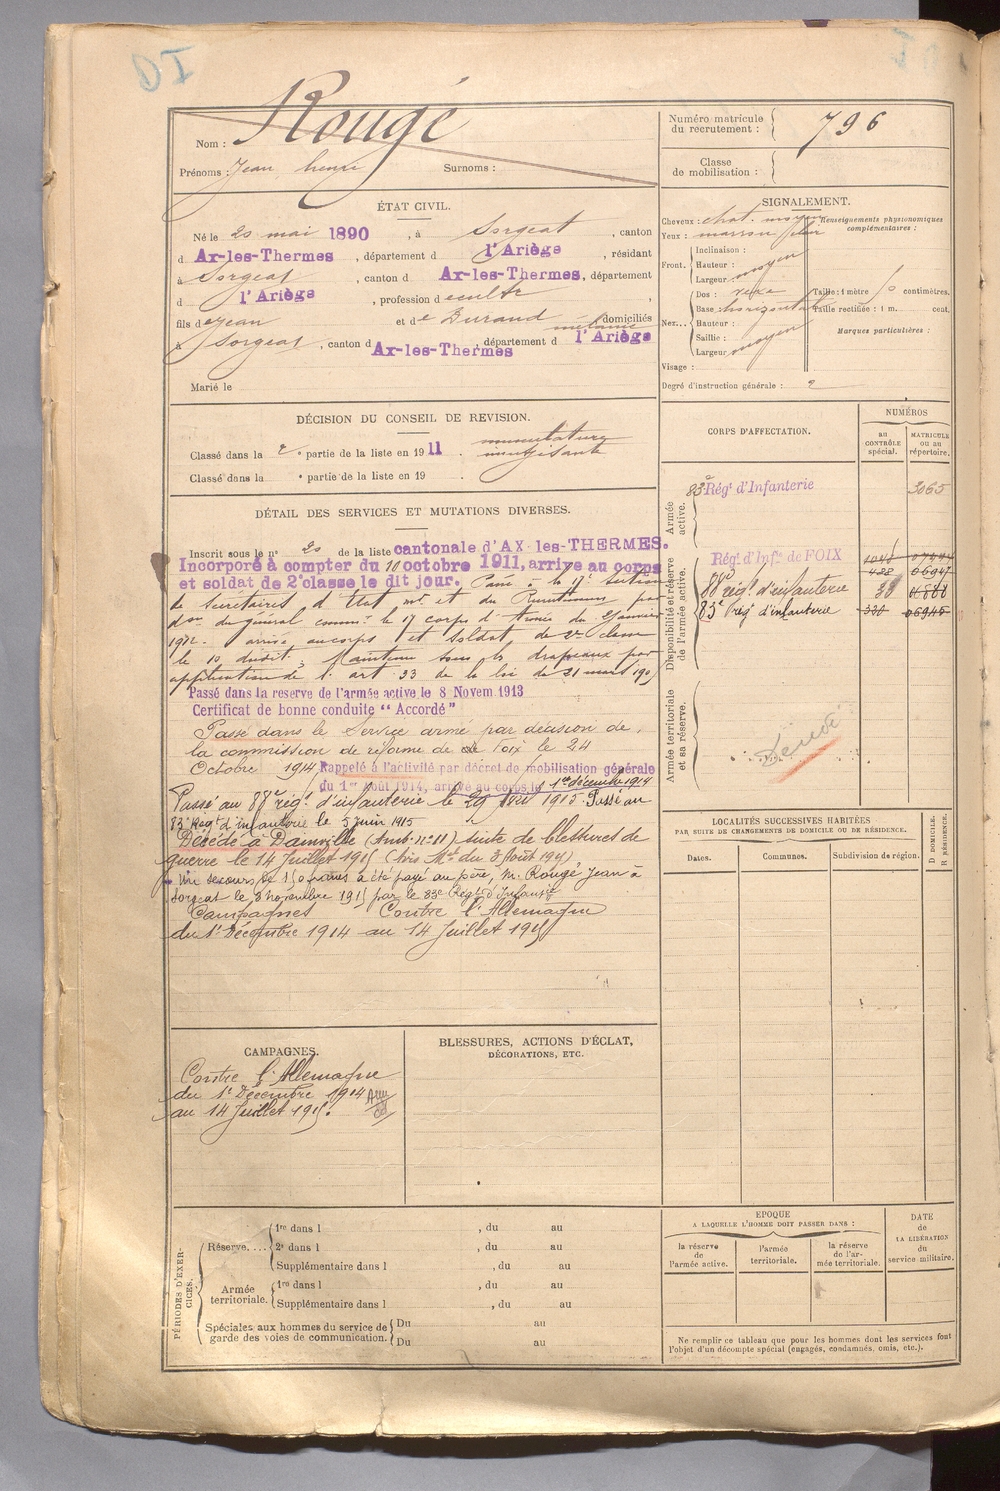 Rougé
Nom :
Prénoms : Jean henri Surnoms :
Numéro matricule du recrutement : 796
Classe de mobilisation :
ÉTAT CIVIL.
Né le 20 mai 1890, à Sorgeat, canton
d Ax-les-Thermes, département d l'Ariège, résidant
à Sorgeat, canton d Ax-les-Thermes, département
d l'Ariège, profession d cultr,
fils de Jean et de Durand mélanie domiciliés
à Sorgeat, canton d Ax-les-Thermes, département d l'Ariège
Marié le
SIGNALEMENT.
Cheveux : chat. moyen
Yeux : marron
Renseignements physionomiques complémentaires :
Front. Inclinaison :
Hauteur : moyen
Largeur
Nez... Dos : 
Base horizontal
Hauteur :
Saillie : moyen
Largeur
Taille : 1 mètre centimètres.
Taille rectifiée : 1 m. cent.
Marques particulières :
Visage :
Degré d'instruction générale : 2
DÉCISION DU CONSEIL DE REVISION.
Classé dans la 2e partie de la liste en 1911. musculature insuffisante
Classé dans la e partie de la liste en 19 .
DÉTAIL DES SERVICES ET MUTATIONS DIVERSES.
Inscrit sous le n° 20 de la liste cantonale d'AX-les-THERMES.
Incorporé à compter du 10 octobre 1911, arrive au corps
et soldat de 2e classe le dit jour. Passé à la 17e section
de secrétaires d'Etat mr et du Recrutement par
don du général commt le 17 corps d'Armée du 2 janvier
1912. arrivé au corps et soldat de 2e classe
le 10 dudit. Maintenu sous les drapeaux par
application de l'art 33 de la loi du 21 mars 1905
Passé dans la reserve de l'armée active le 8 Novem 1913
Certificat de bonne conduite "Accordé"
Passé dans le Service armé par décision de
la commission de réforme de Foix le 24
Octobre 1914 Rappelé à l'activité par décret de mobilisation générale
du 1er Août 1914, arrivé au corps le 1er décembre 1914
Passé au 88e régt d'infanterie le 29 1915. Passé au
83e Régt d'infanterie le 5 juin 1915
Décédé à Dainville (Amb. n° 11) suite de blessures de
guerre le 14 Juillet 1915 (Avis Mel du 3 Août 1915)
Un secours de 150 francs a été payé au père, M. Rougé Jean à
Sorgeat le 3 novembre 1915 par le 83e Régt d'Infantie
Campagnes Contre l'Allemagne
du 1er Décembre 1914 au 14 Juillet 1915
CORPS D'AFFECTATION.
NUMÉROS
au CONTRÔLE spécial.
MATRICULE ou au répertoire.
Armée active.
83e Régt d'Infanterie 3065
Disponibilité et réserve de l'armée active.
Régt d'Infie de FOIX
428 06947
88e régt d'infanterie 38
83e Régt d'infanterie 338 06945
Armée territoriale et sa réserve.
LOCALITÉS SUCCESSIVES HABITÉES
PAR SUITE DE CHANGEMENTS DE DOMICILE OU DE RÉSIDENCE.
Dates. Communes. Subdivision de région.
D DOMICILE. R RÉSIDENCE.
CAMPAGNES.
Contre l'Allemagne
du 1er Décembre 1914
au 14 Juillet 1915.
BLESSURES, ACTIONS D'ÉCLAT,
DÉCORATIONS, ETC.
PÉRIODES D'EXERCICES.
Réserve.... 1re dans l , du au
2e dans l , du au
Supplémentaire dans l , du au
Armée territoriale. 1re dans l , du au
Supplémentaire dans l , du au
Spéciales aux hommes du service de garde des voies de communication. Du au
Du au
EPOQUE
A LAQUELLE L'HOMME DOIT PASSER DANS :
la réserve de l'armée active.
l'armée territoriale.
la réserve de l'armée territoriale.
DATE de LA LIBÉRATION du service militaire.
Ne remplir ce tableau que pour les hommes dont les services font
l'objet d'un décompte spécial (engagés, condamnés, omis, etc.).